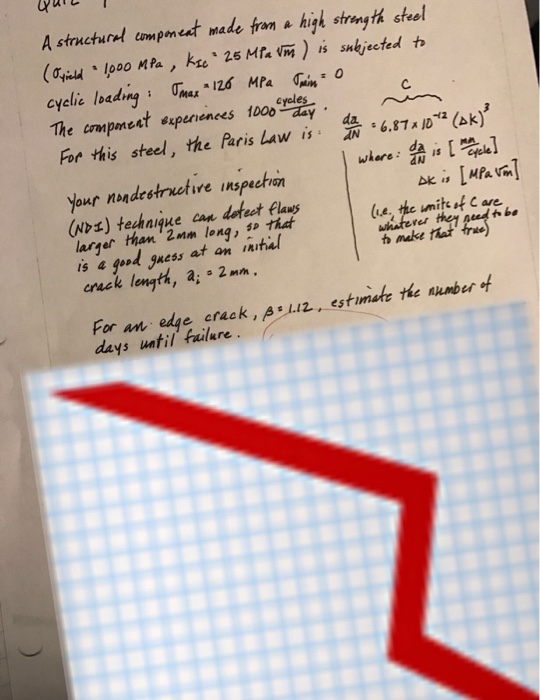 A structural component made from a high strength steel
(σyield = 1,000 MPa, KIC = 25 MPa √m) is subjected to
cyclic loading: σmax = 126 MPa σmin = 0
The component experiences 1000 cycles/day.
For this steel, the Paris Law is: da/dN = 6.87 x 10^-12 (ΔK)^3
C
where: da/dN is [mm/cycle]
ΔK is [MPa √m]
(i.e. the units of C are
whatever they need to be
to make that true)
Your nondestructive inspection
(NDI) technique can detect flaws
larger than 2mm long, so that
is a good guess at an initial
crack length, ai = 2mm.
For an edge crack, β = 1.12, estimate the number of
days until failure.